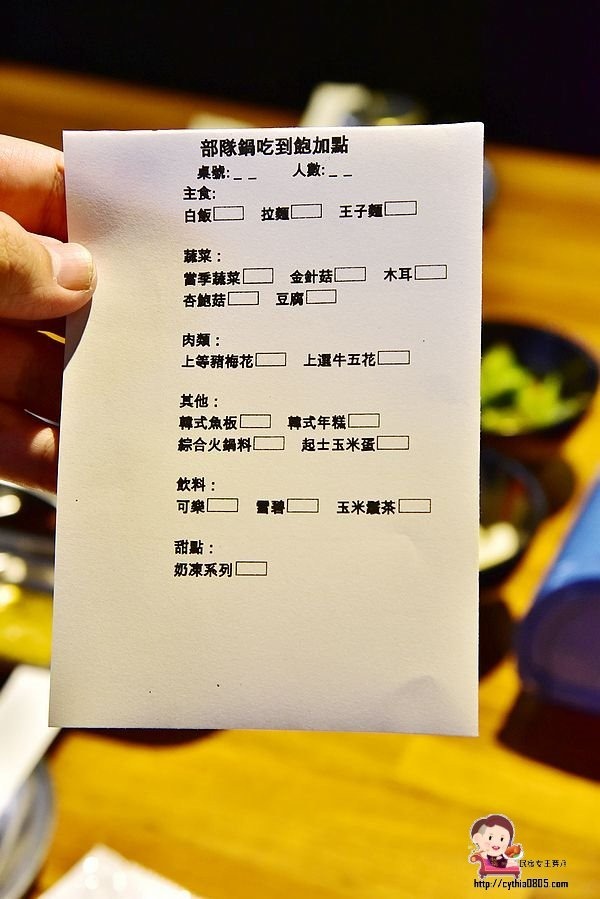 部隊鍋吃到飽加點
桌號:_ _ 人數:_ _
主食:
白飯 拉麵 王子麵
蔬菜：
當季蔬菜 金針菇 木耳
杏鮑菇 豆腐
肉類：
上等豬梅花 上選牛五花
其他：
韓式魚板 韓式年糕
綜合火鍋料 起士玉米蛋
飲料：
可樂 雪碧 玉米鬚茶
甜點：
奶凍系列
民宿女王芽月
http://cythia0805.com